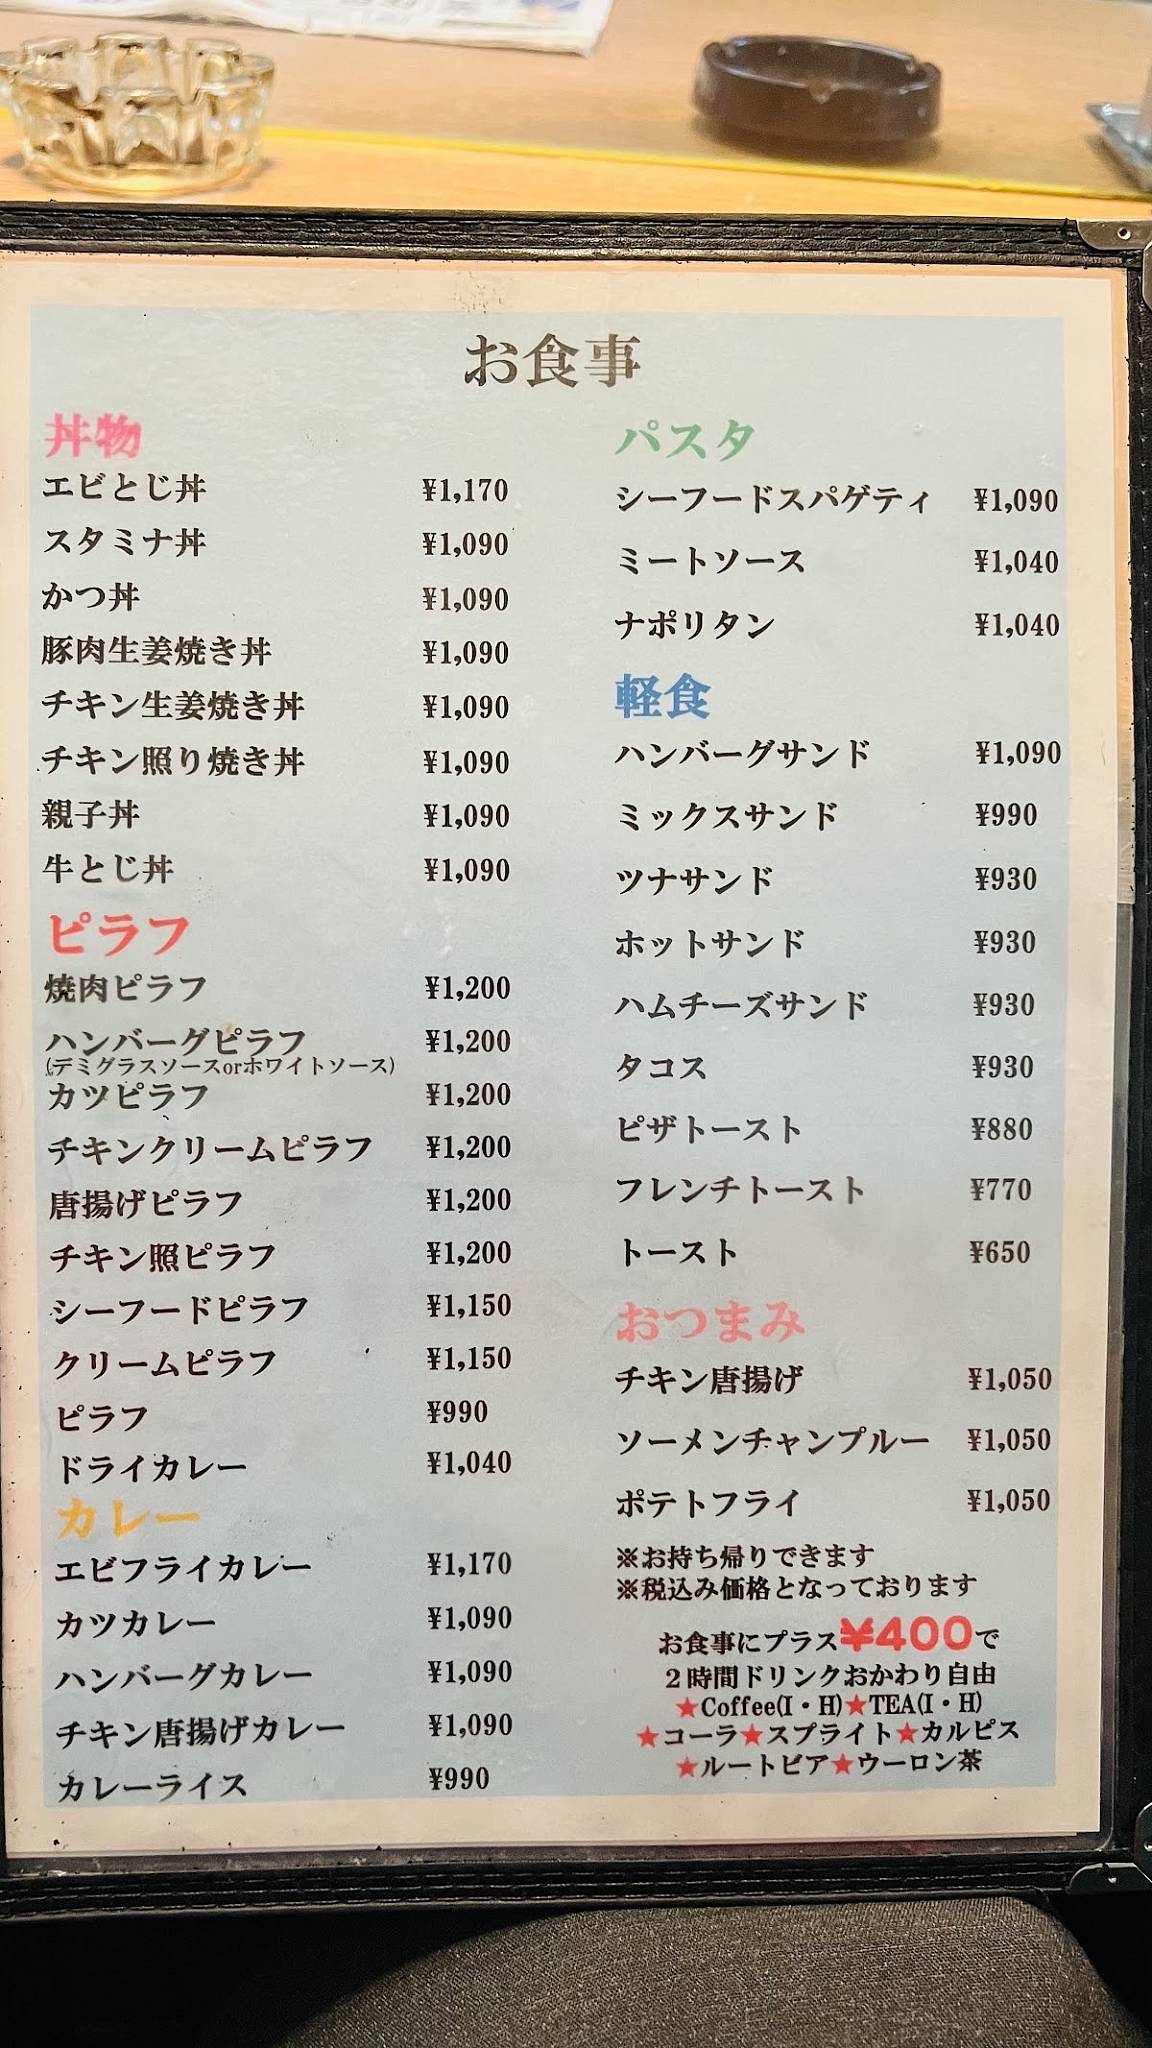 お食事
丼物
エビとじ丼 ¥1,170
スタミナ丼 ¥1,090
かつ丼 ¥1,090
豚肉生姜焼き丼 ¥1,090
チキン生姜焼き丼 ¥1,090
チキン照り焼き丼 ¥1,090
親子丼 ¥1,090
牛とじ丼 ¥1,090
ピラフ
焼肉ピラフ ¥1,200
ハンバーグピラフ ¥1,200
(デミグラスソースorホワイトソース)
カツピラフ ¥1,200
チキンクリームピラフ ¥1,200
唐揚げピラフ ¥1,200
チキン照ピラフ ¥1,200
シーフードピラフ ¥1,150
クリームピラフ ¥1,150
ピラフ ¥990
ドライカレー ¥1,040
カレー
エビフライカレー ¥1,170
カツカレー ¥1,090
ハンバーグカレー ¥1,090
チキン唐揚げカレー ¥1,090
カレーライス ¥990
パスタ
シーフードスパゲティ ¥1,090
ミートソース ¥1,040
ナポリタン ¥1,040
軽食
ハンバーグサンド ¥1,090
ミックスサンド ¥990
ツナサンド ¥930
ホットサンド ¥930
ハムチーズサンド ¥930
タコス ¥930
ピザトースト ¥880
フレンチトースト ¥770
トースト ¥650
おつまみ
チキン唐揚げ ¥1,050
ソーメンチャンプルー ¥1,050
ポテトフライ ¥1,050
※お持ち帰りできます
※税込み価格となっております
お食事にプラス¥400で
2時間ドリンクおかわり自由
★Coffee(I・H)★TEA(I・H)
★コーラ★スプライト★カルピス
★ルートビア★ウーロン茶